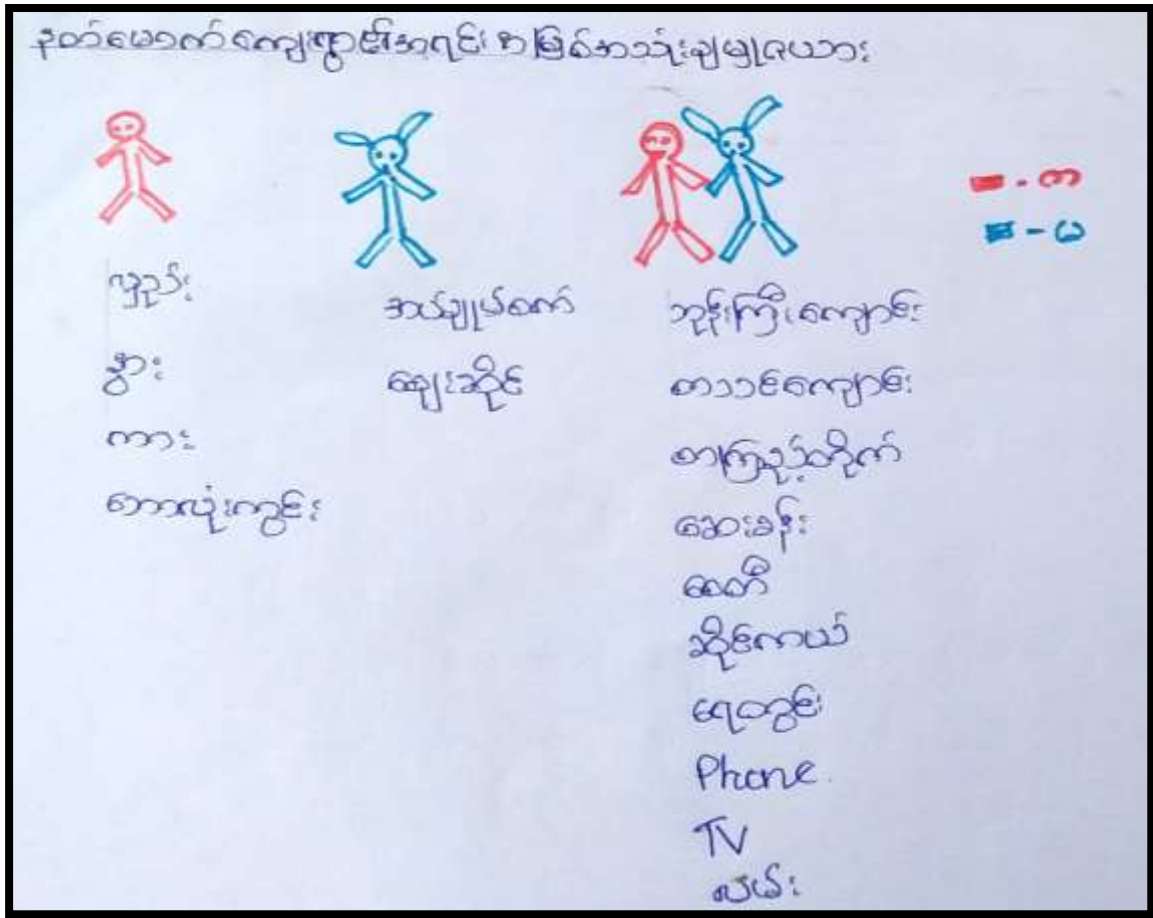 နတ်မောက်ကျေးရွာ၏အရင်းအမြစ်အသုံးချမှုဇယား
- က
- မ
လှည်း
နွား
ကား
ဘောလုံးကွင်း
အပ်ချုပ်စက်
ဈေးဆိုင်
ဘုန်းကြီးကျောင်း
စာသင်ကျောင်း
စာကြည့်တိုက်
ဆေးခန်း
စေတီ
ဆိုင်ကယ်
ရေတွင်း
Phone
TV
လမ်း